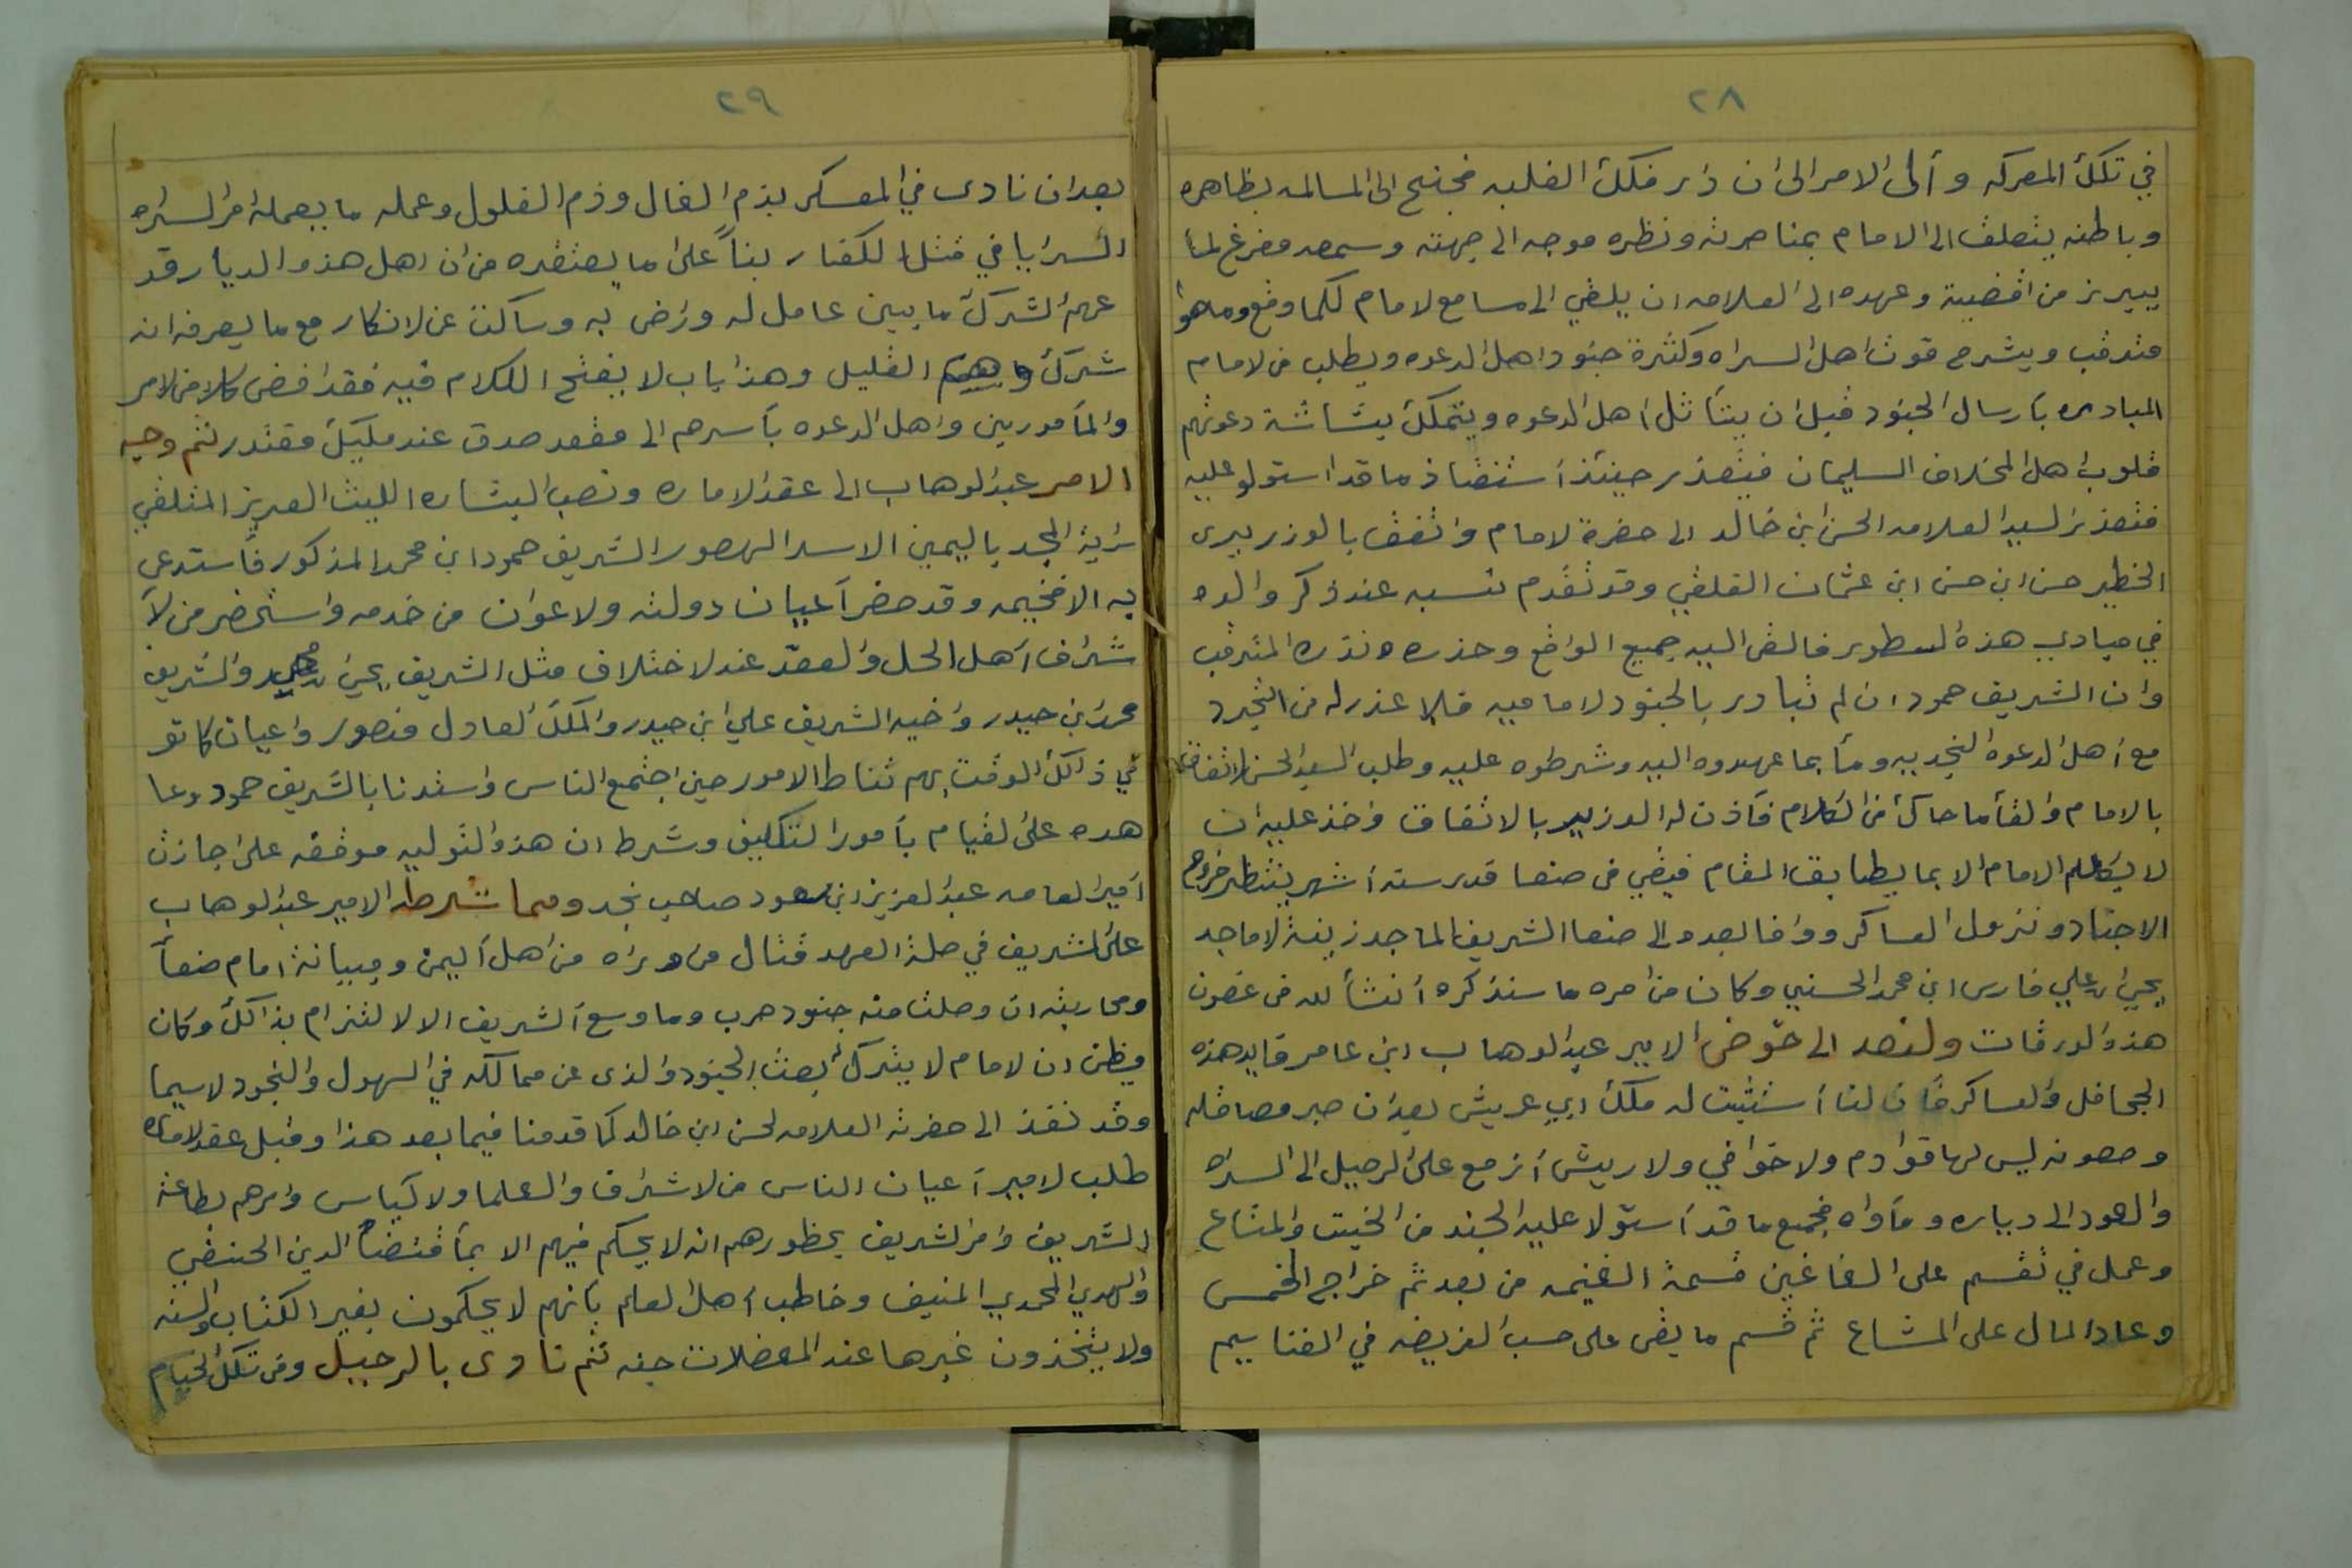 ٢٨
في تلك المعركه وألى الامر الى ان دار فلك الغلبه فجنح الى المسالمه بظاهره
وباطنه يتعلف الى الامام بمناصرته ونظره موجه الى جهته وسمعه مفرغ لما
يبرز من اقضية وعهده الى العلامه ان يلقي الى مسامع لامام لكما وقع وماهو
مترقب ويشرح قوت اهل السراه وكثرة جنود اهل الدعوه ويطلب من لامام
المبادره بأرسال الجنود قبل ان يتأثل اهل الدعوه ويتملك بشاشة دعوتهم
قلوب اهل المخلاف السليمان فيتعذر حينئذ أستنقاذ ماقد استولو عليه
فنفذ السيد العلامه الحسن ابن خالد الى حضرة لامام واتفق بالوزر يرى
الخطير حسن ابن حسن ابن عثمان العلفي وقد تقدم نسبه عند ذكر والده
في مبادي هذه السطور فالقى اليه جميع الواقع وحذره ونذره المترقب
وان الشريف حمود ان لم تبادر بالجنود لاماميه فلا عذر له من التجرد
مع اهل الدعوه النجديه ومأ بما عهدوه اليه وشرطوه عليه وطلب السيد الحسن لاتفاق
بالامام والقأ ماحاك من الكلام فأذن له الوزير بالاتفاق واخذ عليه ان
لا يكلم الامام الا بما يطابق المقام فبقي في صنعا قدر ستة أشهر ينتظر خروج
الاجناد ونزول العساكر ووافا بعده الى صنعا الشريف الماجد زينة لاماجد
يحيى ابن علي فارس ابن محمد الحسني وكان من امره ما سنذكره أنشأ لله في غضون
هذه الورقات ولنعد الى خوض الامير عبد الوهاب ابن عامر قايد هذه
الجحافل والعساكر فأن لنا أستثبت له ملك ابي عريش بعد ان صير معاقله
وحصونه ليس لها قوادم ولا خوافي ولا ريش أزمع على الرحيل الى السراه
والعود الى دياره ومأواه فجميع ماقد أستولا عليه الجند من الخيت والمتاع
وعمل في تقسم على الغاغين قسمة الغنيمه من بعد ثم خراج الخمس
وعاد المال على المشاع ثم قسم ما بقى على حسب الفريضه في الغنا ييم
٢٩
بعد ان نادى في المعسكر بذم الغال وذم الغلول وعمله ما يعمله امر السراه
السرايا في قتل الكفار بنأً على ما يعتقده من ان اهل هذه الديار قد
عمهم الشرك ما بين عامل له وراض به وساكت عن لانكار مع ما يعرفه انه
شرك القليل وهذا باب لا يفتح الكلام فيه فقد افضى كلا من لامر
والمأمورين واهل الدعوه بأسرهم الى مقعد صدق عند مليك مقتدر ثم وجه
الامير عبد الوهاب الى عقد الاماره ونصب البشاره الليث العريز المتلقي
راية المجد باليمين الاسد الهصور الشريف حمود ابن محمد المذكور فأستدعى
به الا فخيمه وقد حضر أعيان دولته ولاعوان من خدمه واستحضر من لأ
شراف أهل الحل والعقد عند لاختلاف مثل الشريف يحيى ابن والشريف
محمد ابن حيدر واخيه الشريف علي ابن حيدر والملك العادل منصور واعيان كانو
في ذالك الوقت بهم تناط الامور حين اجتمع الناس واستدنا بالشريف حمود وعا
هده على لقيام بأمور التكليف وشرط ان هذه التوليه موقفه على اجازت
امير العامه عبد العزيز ابن سعود صاحب نجد ومما شرطه الامير عبد الوهاب
على الشريف في صلة العهد قتال من وراه من اهل أليمن ومبيانة امام صنعأ
ومحاربته ان وصلت منه جنود حرب وما وسع ألشريف الا لالتزام بذالك وكان
ويظن ان لامام لا يترك بعث الجنود والذى عن ممالكه في السهول والنجود لاسيما
وقد نفذ الى حضرته العلامه لحسن ابن خالد كما قدمنا فيما بعد هذا وقبل عقد لاماره
طلب لامير أعيان الناس من لاشراف والعلما ولاكياس وامرهم بطاعة
الشريف وامر الشريف بحظورهم انه لا يحكم فيهم الا بمأقتضاه الدين الحنفي
والهدي المحمدي المنيف وخاطب أهل العلم بأنهم لا يحكمون بغير الكتاب والسنه
ولا يتخذون غيرها عند المعضلات جنه ثم نادى بالرحيل وفي تلك الخيام